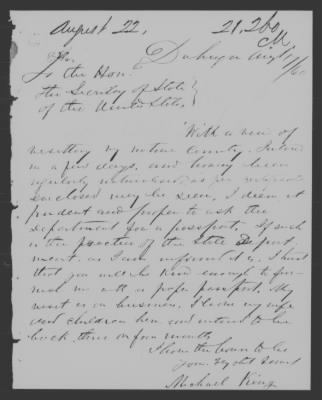 August 22,
21,260
Dubuque Aug
/60
To the Hon.
the Secretary of State
of the United States,
With a view of
visiting my native country, Ireland
in a few days, and having been
regularly naturalized, as per
enclosed may be seen, I deem it
prudent and proper to ask the
department for a passport. If such
is the practice of the State Depart
ment, as I am informed it is, I trust
that you will be kind enough to fur-
nish me with a proper passport. My
visit is on business, I leave my wife
and children here and intend to be
back three or four months
I have the honor to be
your Obdt Servt
Michael King